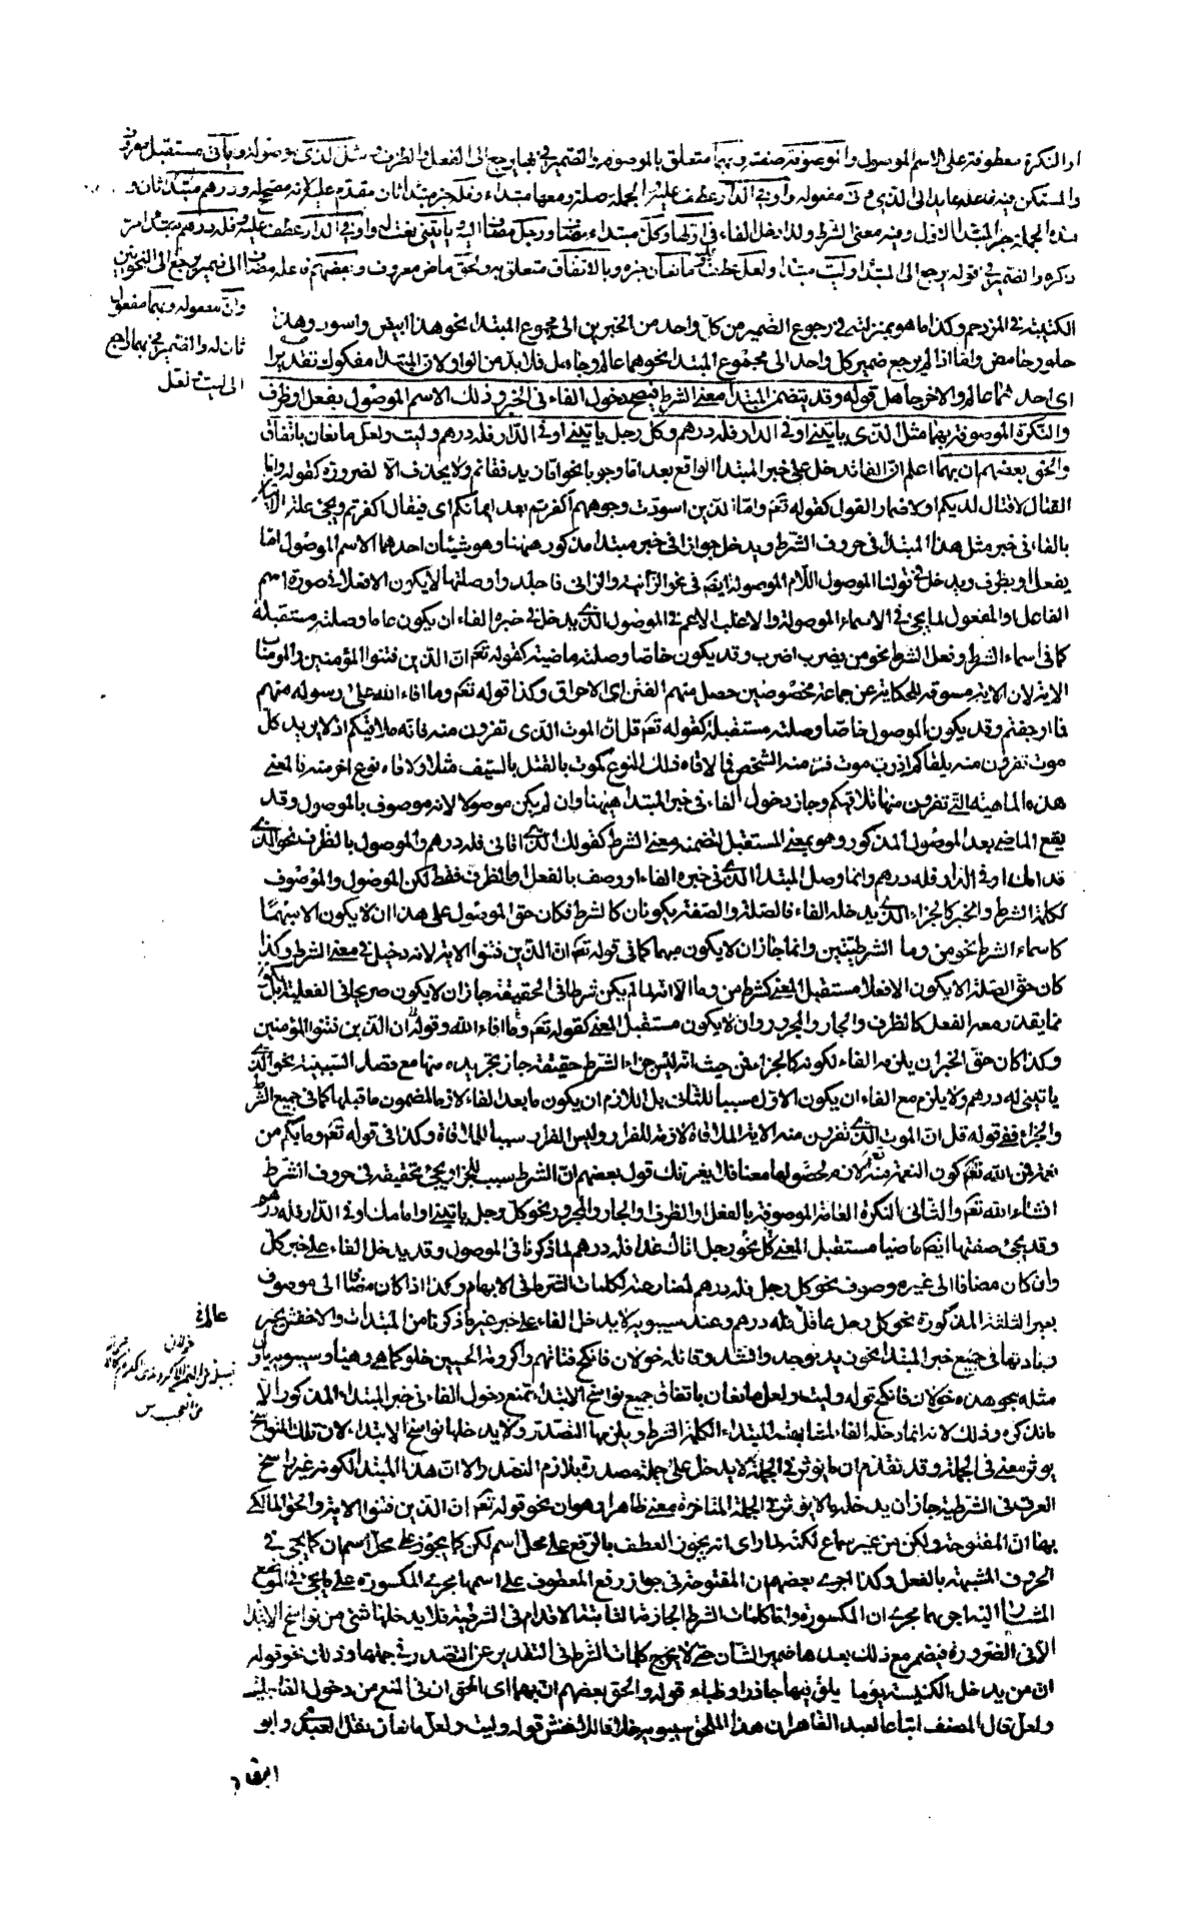 او النكرة معطوفة على الاسم الموصول والموصوفة صفته وبهما متعلق بالموصوفة والضمير في بهما يرجع الى الفعل والظرف مثل الذى موصولة ويأتى مستقبل معروف
والمستكن فيه فاعله عايد الى الذى مفعوله واو في الدار عطف عليه الجملة صلته ومعها مبتداء وفله خبر مبتدا ثان مقدم عليه ودرهم مبتدا ثان و
هذه الجملة خبر المبتدا الاول وفيه معنى الشرط ولذا دخل الفاء في اولها وكل مبتداء مضافا ورجل مضافا اليه يأتينى نعت له واو في الدار عطف عليه فله درهم
ذكره والضمير في قوله يرجع الى المبتدا وليت مبتدا ولعل عطف مانعان خبره وبالاتفاق متعلق به والحق ماض معروف وبعضهم فاعله مضاف الى ضمير يرجع الى النحويين
وان مفعوله وبهما مفعول
ثان له والضمير في بهما راجع
الى ليت ولعل
الكتيبة في المزدحم وكذا ما هو بمنزلته في رجوع الضمير من كل واحد من الخبرين الى مجموع المبتدا نحو هذا ابيض واسود وهذا
حلو وحامض واما اذا لم يرجع ضمير كل واحد الى مجموع المبتدا نحو هما عالم وجاهل فلا بد من الواو لان المبتدا مفكوك تقديرا
اى احدهما عالم والاخر جاهل قوله وقد يتضمن المبتدا معنى الشرط فيصح دخول الفاء في الخبر وذلك الاسم الموصول بفعل او ظرف
والنكرة الموصوفة بهما مثل الذى ياتينى او في الدار فله درهم وكل رجل ياتينى او في الدار فله درهم وليت ولعل مانعان باتفاق
والحق بعضهم ان بهما اعلم ان الفاء تدخل على خبر المبتدا الواقع بعد اما وجوبا نحو اما زيد فقائم ولا يحذف الا لضرورة كقوله واما
القتال لا قتال لديكم او لاضمار القول كقوله تعم واما الذين اسودت وجوههم اكفرتم بعد ايمانكم اى فيقال اكفرتم ويجئ علة الاتيان
بالفاء في خبر مثل هذا المبتدا في حروف الشرط ويدخل جوازا في خبر مبتدا مذكور ههنا وهو شيئان احدهما الاسم الموصول اما
بفعل او بظرف ويدخل في قولنا الموصول اللام الموصولة ايضا في نحو الزانية والزانى فاجلدوا وصلتها لا يكون الا فعلا في صورة اسم
الفاعل والمفعول لما يجئ في الاسماء الموصولة والاغلب الاعم في الموصول الذى يدخل في خبره الفاء ان يكون عاما وصلته مستقبلة
كما في اسماء الشرط وفعل الشرط نحو من يضرب اضرب وقد يكون خاصا وصلته ماضية كقوله تعم ان الذين فتنوا المؤمنين والمومنات
الاية لان الاية مسوقة للحكاية عن جماعة مخصوصين حصل منهم الفتن اى الاحراق وكذا قوله تعم وما افاء الله على رسوله منهم
فما اوجفتم وقد يكون الموصول خاصا وصلته مستقبلة كقوله تعم قل ان الموت الذى تفرون منه فانه ملاقيكم اذ لا يريد كل
موت تفرون منه يلقاكم اذ رب موت فر منه الشخص فما لاقاه ذلك النوع كموت بالقتل بالسيف مثلا ولاقاه نوع اخر منه فالمعنى
هذه الماهية التى تفرون منها تلاقيكم وجاز دخول الفاء في خبر المبتدا ههنا وان لم يكن موصولا لانه موصوف بالموصول وقد
يقع الماضى بعد الموصول المذكور وهو بمعنى المستقبل لتضمنه معنى الشرط كقولك الذى اتانى فله درهم والموصول بالظرف نحو الذى
قدامك او في الدار فله درهم وانما وصل المبتدا الذى في خبره الفاء او وصف بالفعل والظرف فقط لكن الموصول والموصوف
لكلمة الشرط والخبر كالجزاء الذى يدخله الفاء فالصلة والصفة يكونان كالشرط فكان حق الموصول على هذا ان لا يكون الا مبهما
كاسماء الشرط نحو من وما الشرطيتين وانما جاز ان لا يكون مبهما كما في قوله تعم ان الذين فتنوا الاية لانه دخيل في معنى الشرط وكذا
كان حق الصلة الا يكون الا فعلا مستقبل المعنى كشرط من وما الا انها لم يكن شرطا في الحقيقة جاز ان لا يكون صريحا في الفعلية بل
مما يقدر معه الفعل كالظرف والجار والمجرور وان لا يكون مستقبل المعنى كقوله تعم وما افاء الله وقوله ان الذين فتنوا المؤمنين
وكذا كان حق الخبر ان يلزمه الفاء لكونه كالجزاء فمن حيث انه ليس جزاء الشرط حقيقة جاز تجريده منها مع قصد السببية نحو الذى
ياتينى له درهم ولا يلزم مع الفاء ان يكون الاول سببا للثانى بل اللازم ان يكون ما بعد الفاء لازما لمضمون ما قبلها كما في جميع الشرط
والجزاء ففى قوله قل ان الموت الذى تفرون منه الاية الملاقاة لازمة للفرار وليس الفرار سببا للملاقاة وكذا في قوله تعم وما بكم من
نعمة فمن الله تعم كون النعمة منه لازم لحصولها معنا فلا يغرنك قول بعضهم ان الشرط سبب للجزاء يجئ تحقيقه في حروف الشرط
انشاء الله تعم والثانى النكرة العامة الموصوفة بالفعل والظرف والجار والمجرور نحو كل رجل ياتينى او امامك او في الدار فله درهم
وقد يجئ صفتها ايضا ماضيا مستقبل المعنى نحو كل رجل اتاك غدا فله درهم لما ذكرنا في الموصول وقد يدخل الفاء على خبر كل
وان كان مضافا الى غير موصوف نحو كل رجل فله درهم لمضارعته لكلمات الشرط في الابهام وكذا اذا كان مضافا الى موصوف
بغير الثلثة المذكورة نحو كل رجل عاقل فله درهم وعند سيبويه لا يدخل الفاء على خبر غير ما ذكرنا من المبتدات والاخفش يجيز
زيادتها في جميع خبر المبتدا نحو زيد فوجد وانشد وقائلة خولان فانكح فتاتهم واكرومة الحيين خلو كما هيا وسيبويه يأول
مثله بنحو هذه خولان فانكح قوله وليت ولعل مانعان باتفاق جميع نواسخ الابتداء تمنع دخول الفاء في خبر المبتدا المذكور الا
ما نذكره وذلك لانه انما دخله الفاء لمشابهة المبتداء الكلمة الشرط ويلزمها التصدر ولا يدخلها نواسخ الابتداء لان تلك النواسخ
يؤثر معنى في الجملة وقد تقدم ان ما يؤثر في الجملة لا يدخل على جملة مصدرة بلازم التصدر الا ان هذا المبتدا لكونه غير راسخ
العرق في الشرطية جاز ان يدخله ما لا يؤثر في الجملة المتاخرة معنى ظاهرا وهو ان نحو قوله تعم ان الذين فتنوا الاية والحق المالكى
بها ان المفتوحة ولكن من غير سماع لكنه لما راى انه يجوز العطف بالرفع على محل اسم لكن كما يجوز على محل اسم ان كما يجئ في
الحروف المشبهة بالفعل وكذا اجرى بعضهم ان المفتوحة في جواز رفع المعطوف على اسمها مجرى المكسورة على ما يجئ في الموضع
المشار اليه اجريهما مجرى ان المكسورة واما كلمات الشرط الجازمة الثابتة الاقدام في الشرطية فلا يدخلها شئ من نواسخ الابتدا
الا في الضرورة فيضمر مع ذلك بعدها ضمير الشأن حتى لا يخرج كلمات الشرط في التقدير عن التصدر في جملها وذلك نحو قوله
ان من يدخل الكنيسة يوما يلق فيها جاذرا وظباء قوله والحق بعضهم ان بهما اى الحق ان في المنع من دخول الفاء بليت
ولعل قال المصنف اتباعا لعبد القاهر ان هذا الملحق سيبويه خلافا للاخفش قوله وليت ولعل مانعان نقل العبدى وابو
عالم
البقا